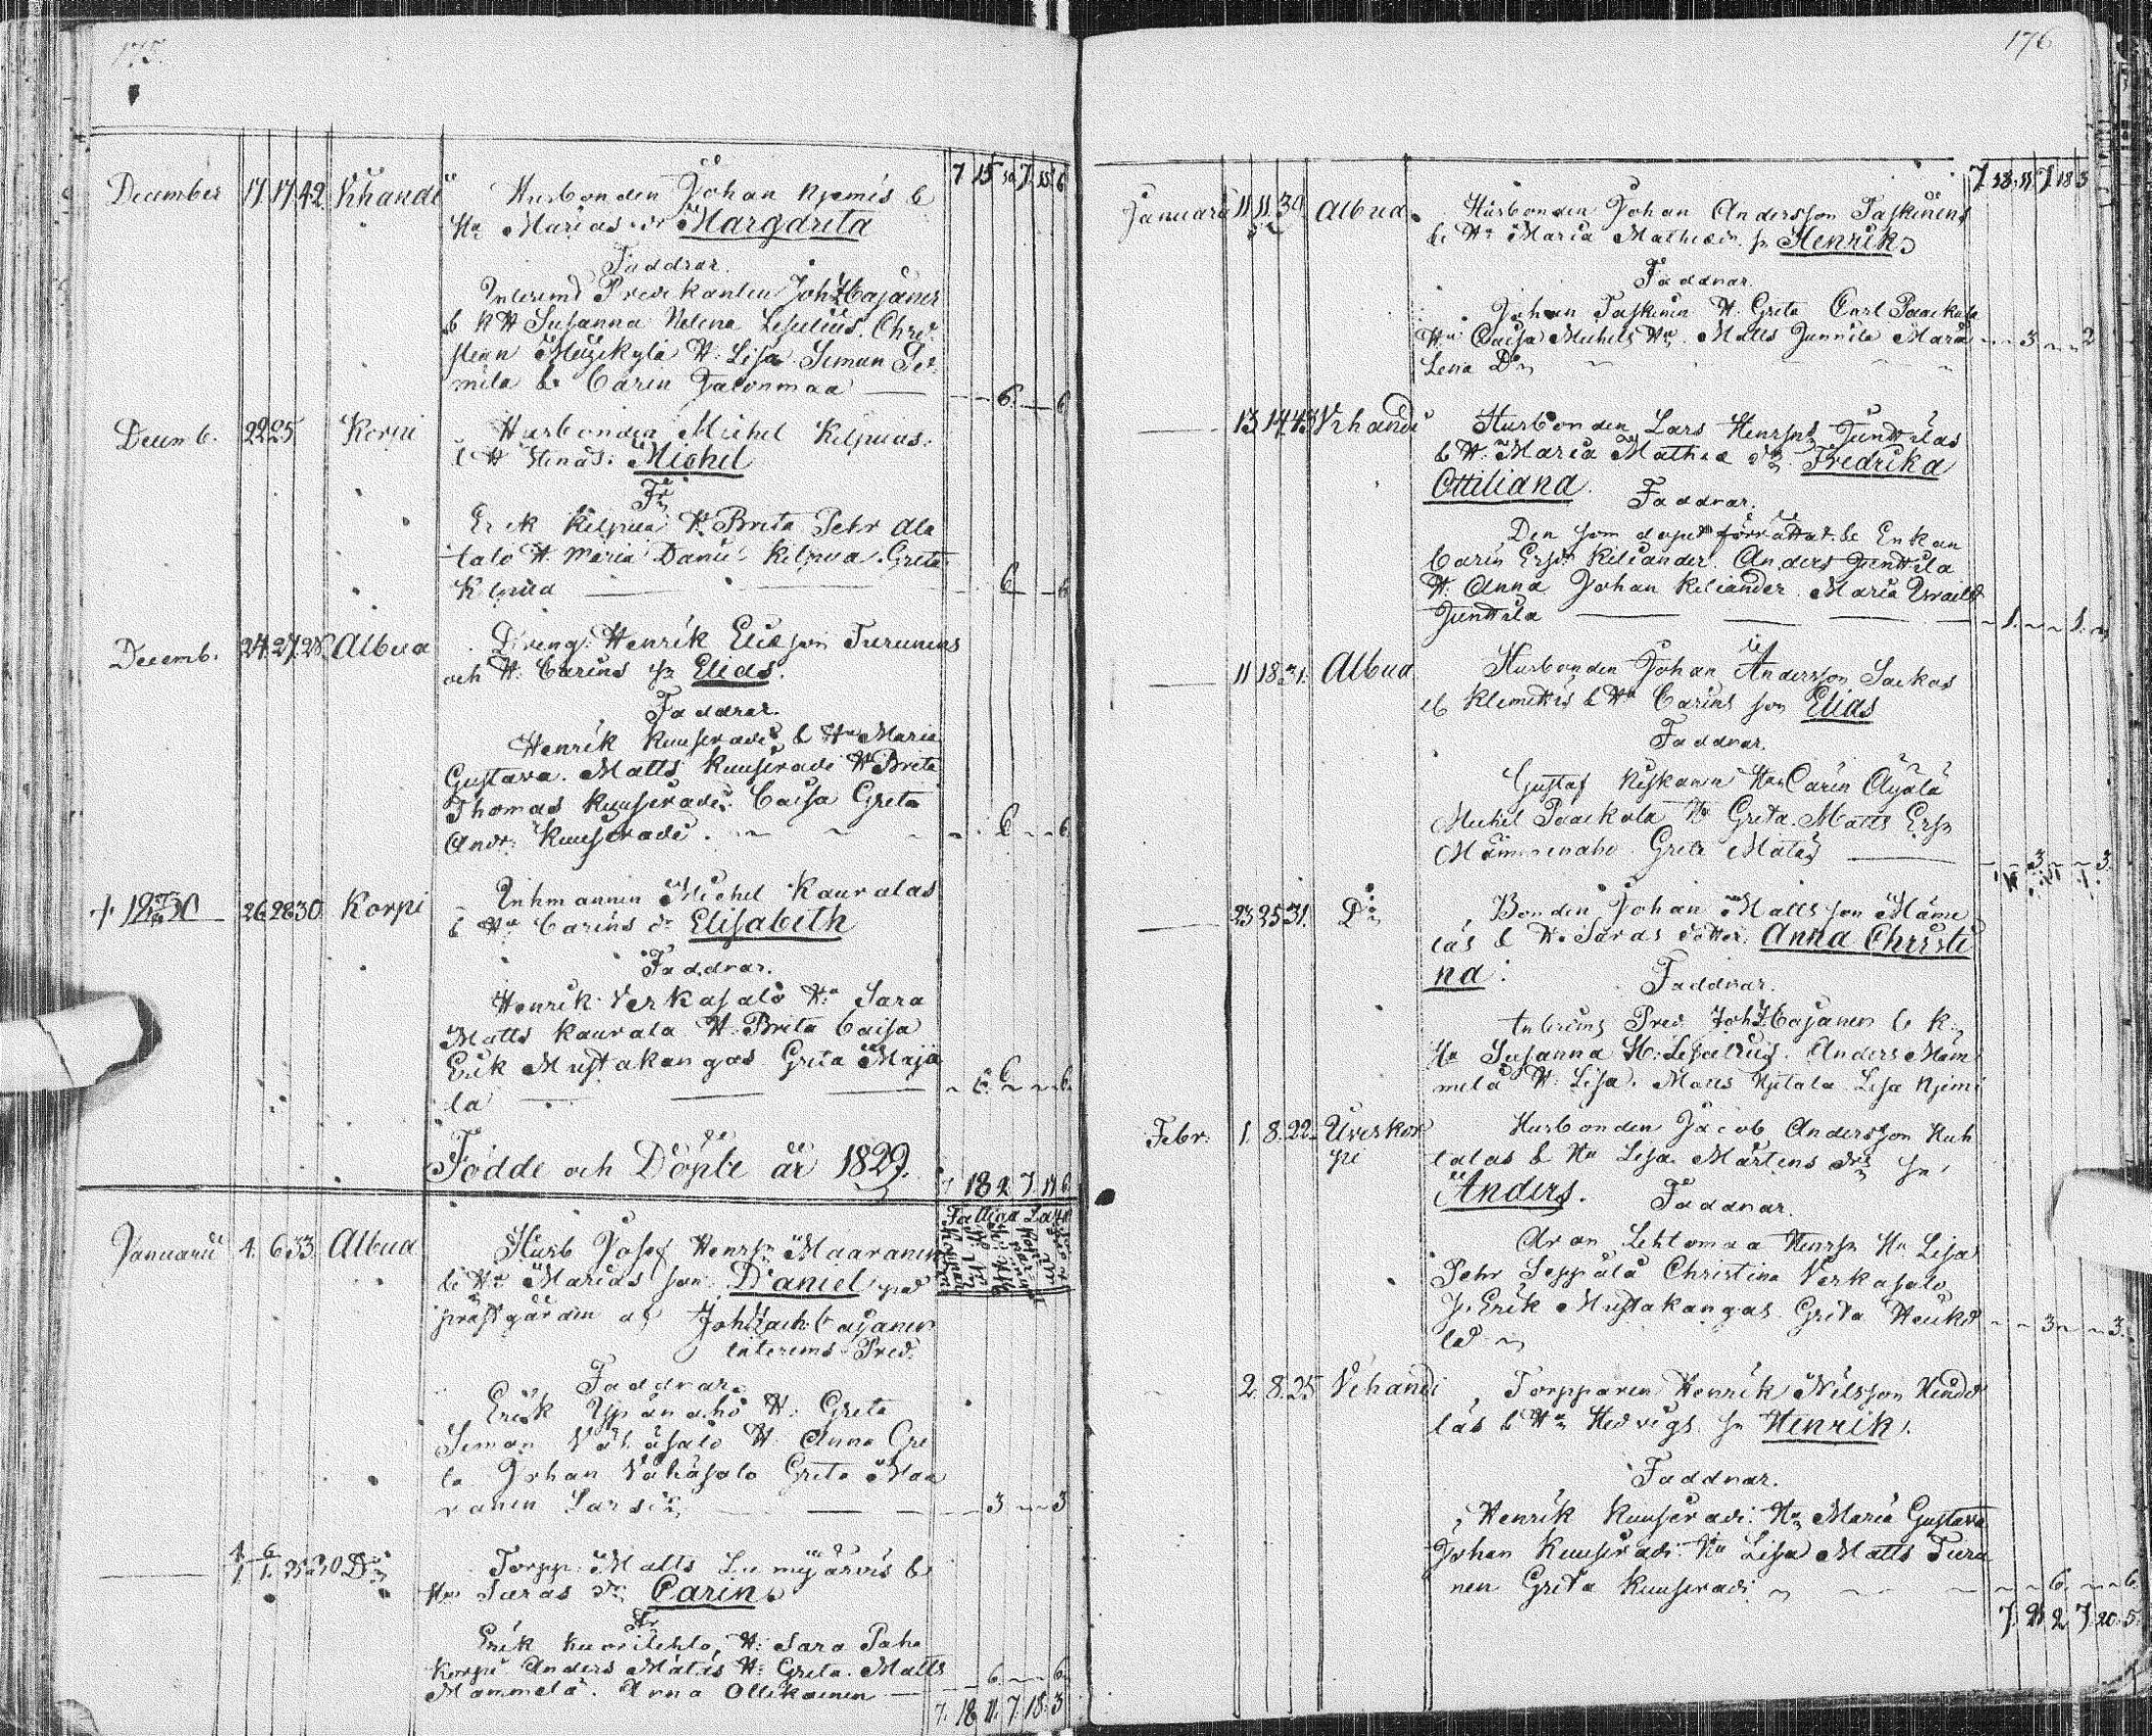 175.
7 15 10 7 15 6
December 17. 17. 42. Vihandi Husbonden Johan Njemis &
Hu Marias dr Margareta
Faddrar.
Interims Predikanten Joh Z Cajanus
& K H Susanna Helena Lesulius. Chri
stian Mezikylä H. Lisa Siman
mila & Carin Jaconmaa
6 6
Decemb. 22 25 Korpi Husbonden Michel Kilpuas
& H Stinas: Michel
Fr
Erik Kilpua H. Brita Pehr Ala
talo H. Maria Daniel Kilpua. Greta
Kilpua 6 6
Decemb. 27. 27. 28. Albua Dreng. Henrik Eliæson Turunens
och H. Carins sn Elias.
Faddrar.
Henrik Kuuseradi & Hu Maria
Gustava. Matts Kuuseradi H Brita
Thomas Kuuseradi Caisa Greta
Andr: Kuuseradi. 6 6
26. 28 30. Korpi Inhmannen Michel Kauralas
& Hu Carins dr Elisabeth
Faddrar.
Henrik Verkasalo Hu Sara
Matts Kaurala H. Brita Caisa
Erik Mustakangas Greta Maja
la 6 6
Födde och Döpte år 1829.
7 18 2 7 11 6
Januarii 4. 6 33. Albua Husb Josef Henrsn Maaranen
& Hu Marias son Daniel på
prästgården af Joh Zach: Cajanus
interims Pred:
Faddrar.
Erik Ypänaho H: Greta
Siman Vähäsalo H. Anna Gre
ta Johan Vähäsalo Greta Maa
ranen Larsdr 3 3
Do Torpp. Matts Lumijärvis &
Hu Saras dr Carin.
Fr
Erik Kuorilehto, H: Sara Paha
korpi Anders Matas H: Greta. Matts
Mammela. Anna Ollikainen 6 6
7. 18 11. 7. 18. 3
176
7. 18. 11. 7 18 3
Januarii 11 11. 30 Albua. Husbonden Johan Andersson Taskinens
& Hu Maria Mathiædr. sn Henrik
Faddrar.
Johan Taskinen H. Greta Carl Paackola
Hu Caisa Michels Hu. Matts Junnila Maria 3 2
Lena Dr
13 14 43 Vihandi Husbonden Lars Henrsns Junttilas
& H. Maria Mathiæ dr Fredrika
Ottiliana. Faddrar.
Den som dopet förrättat & Enkan
Carin Ersdr Keliander. Anders Junttila
H. Anna Johan Keliander. Maria Israelsdr
Junttila 1. 1.
11 18 31. Albua Husbonden Johan Andersson Saekas
el Klemettis & Hu Carins son Elias
Faddrar.
Gustaf Niskanen Hu Carin Äijälä
Michel Paackola Hu Greta. Matts Ersn
Mäminenaho Greta Matas 3 3.
23 25 31. Do Bonden Johan Mattsson Mäme
läs & H. Saras dotter Anna Christi
na: Faddrar.
Interims Pred Joh Z Cajanus & K:
Hu Susanna H: Lesulius. Anders Mäm
melä H. Lisa. Matts Njitala Lisa Njemi
Febr. 1. 8. 22. Överkor
pi
Husbonden Jacob Andersson Huh
talas & Hu Lisa Mårtens dr sn
Anders. Faddrar.
Aron Lehtomaa Henrsn Hu Lisa
Pehr Seppälä Christina Verkasalo
J. Erik Mustakangas Greta Heikki
lä 3 3.
2. 8. 25 Vihandi Torpparen Henrik Nilsson Hendo
läs & Hu Hedvigs. sn Henrik.
Faddrar.
Henrik Kuuseradi: Hu Maria Gustava
Johan Kuuseradi: Hu Lisa Matts Turu
nen Greta Kuuseradi 6. 6.
7. 21 2 7. 20. 5.